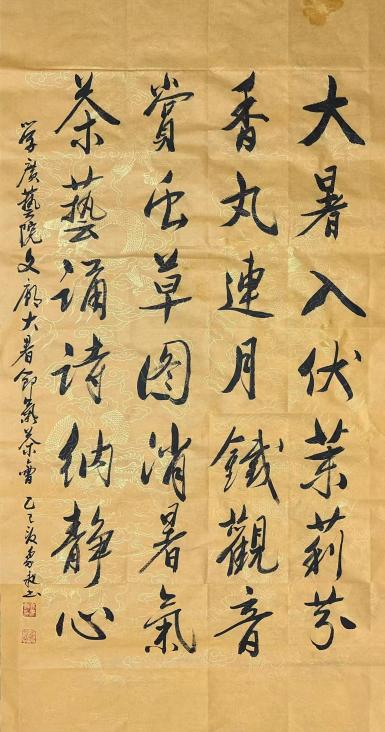 大暑入伏茉莉芬
香丸連月鐵觀音
賞虫草图消暑氣
茶藝誦詩納靜心
廣藝院文廊大暑節氣茶會 乙巳